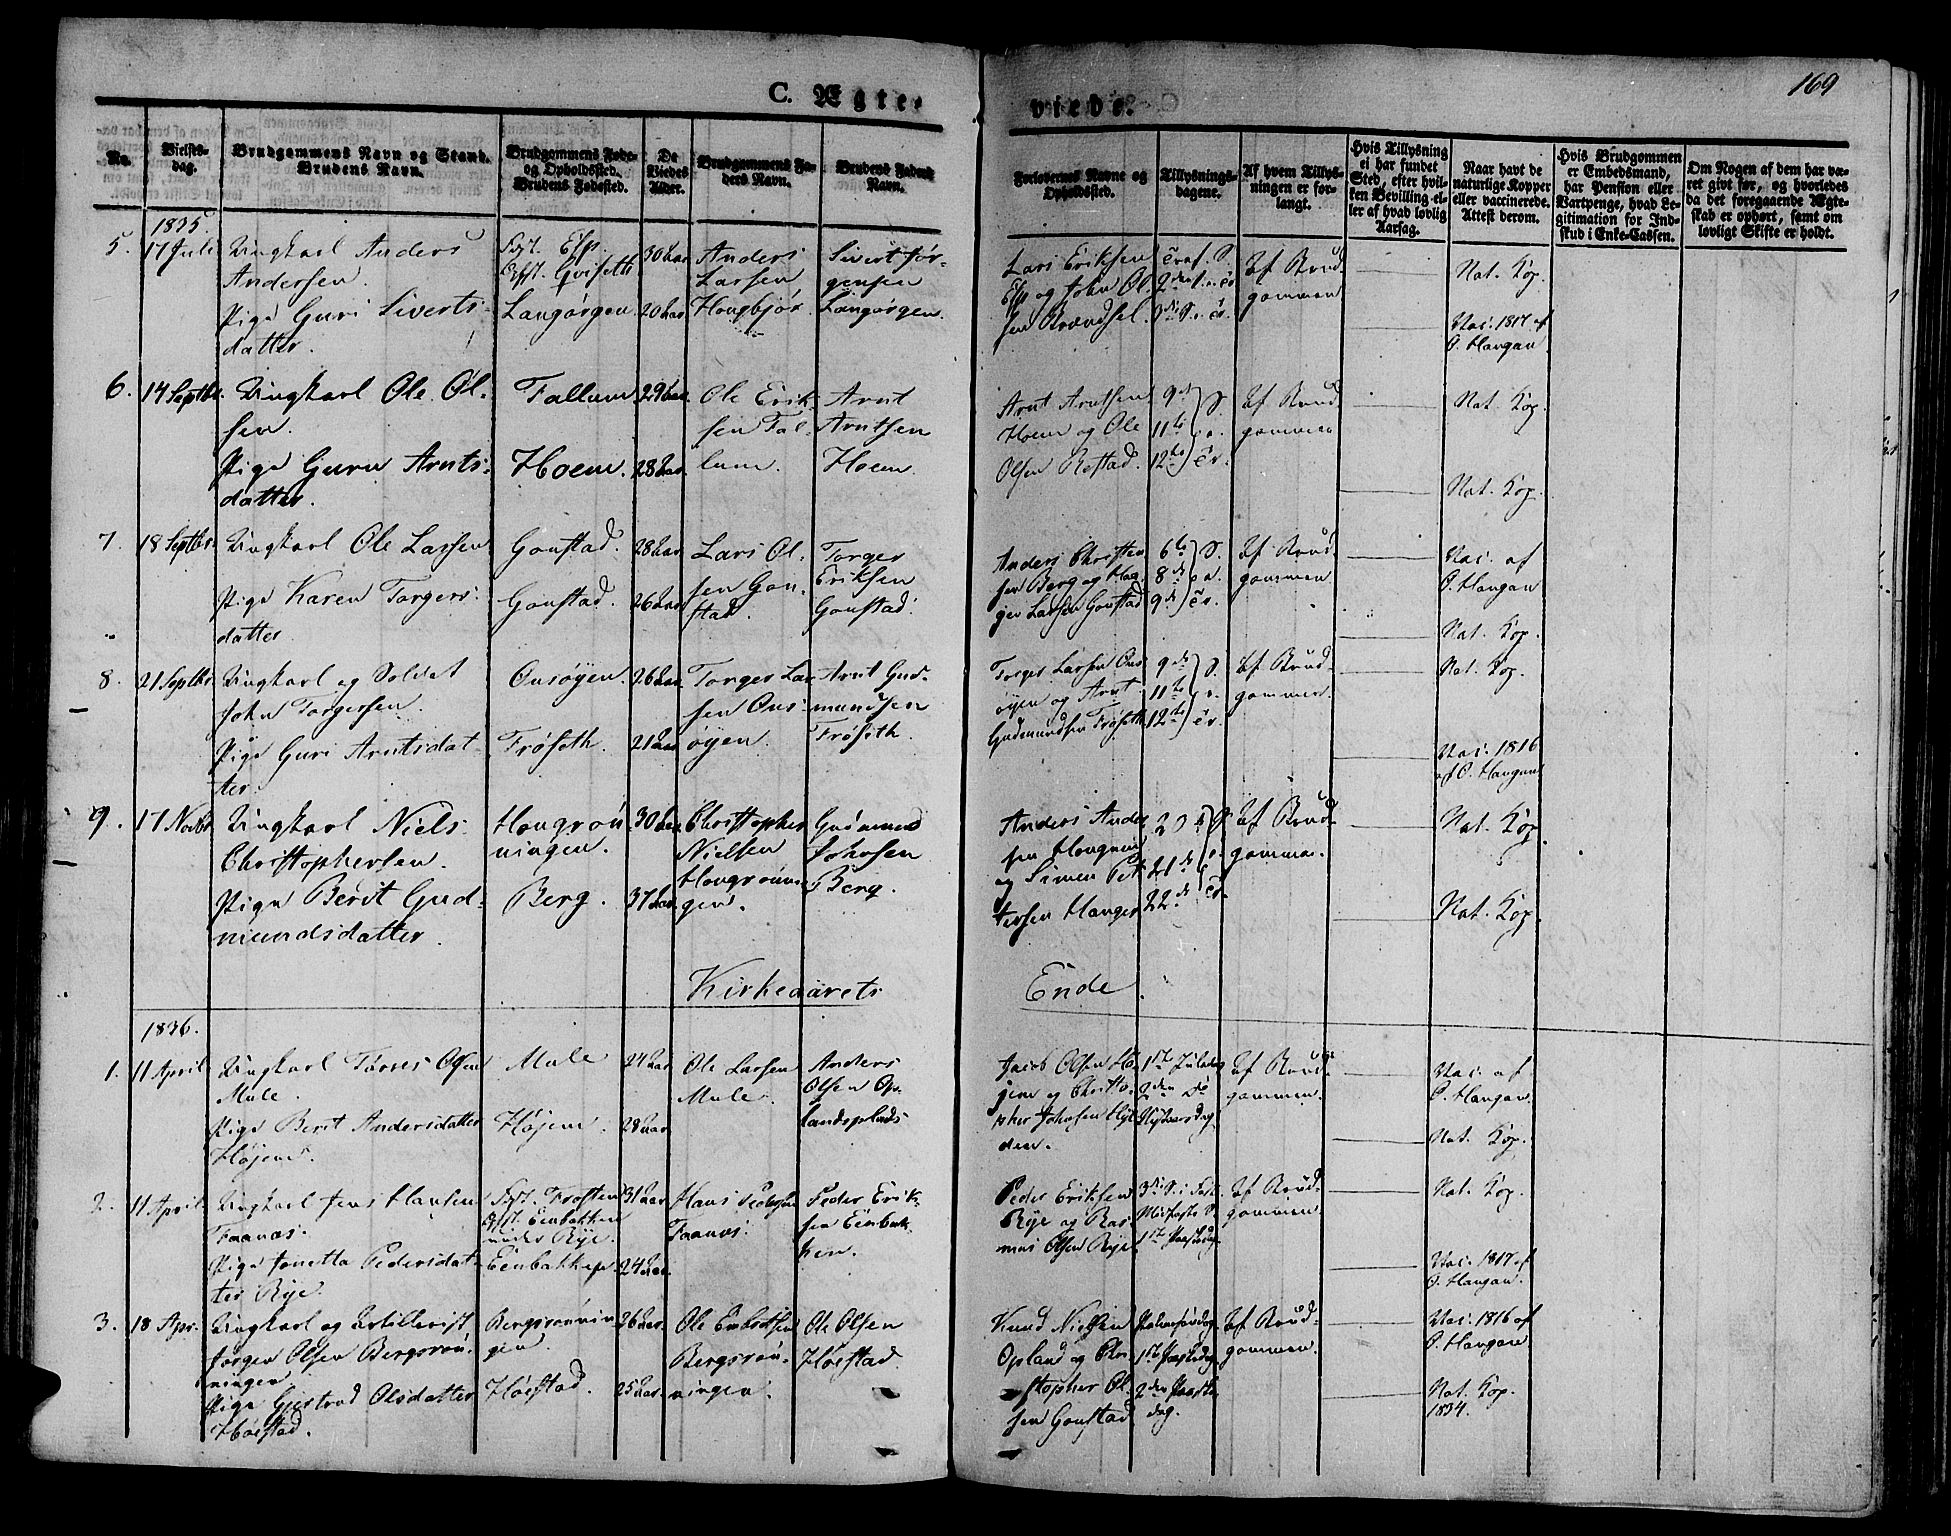 169
C. Ægte-
viede.
No.
Vielses-
dag.
Brudgommens Navn og Stand.
Brudens Navn.
Brudgommens Føde-
og Opholdssted.
Brudens Fødested.
De
Viedes
Alder.
Brudgommens Fa-
ders Navn.
Brudens Faders
Navn.
Forlovernes Navne og
Opholdssted.
Tillysnings-
dagene.
Af hvem Tillys-
ningen er for-
langt.
Hvis Tillysning
ei har fundet
Sted, efter hvil-
ken Bevilling el-
ler af hvad lovlig
Aarsag.
Naar havt de
naturlige Kopper
eller vaccinerede.
Attest derom.
Hvis Brudgommen
er Embedsmand,
har Pension eller
Vartpenge, hvad Le-
gitimation for Ind-
skud i Enke-Cassen.
Om Nogen af dem har væ-
ret givt før, og hvorledes
da det foregaaende Ægte-
skab er ophørt, samt om
lovligt Skifte er holdt.
1835.
5. 17 Juli Ungkarl Anders
Andersen.
Pige Guri Siverts-
datter.
Esp.
Langørgen.
30 Aar
20 Aar
Anders
Larsen
Hougbjør.
Sivert Jør-
gensen
Langørgen.
Lars Eriksen
Esp og John Ol-
sen
Af Brud-
gommen
Nat. Kop.
Vac. 1817 af
O. Haugan.
6. 14 Septbr. Ungkarl Ole Ol-
sen.
Pige Guru Arnts-
datter.
Fallum
Hoem.
29 Aar.
28 Aar.
Ole Erik-
sen Fal-
lum.
Arnt
Arntsen
Hoem.
Arnt Arntsen
Hoem og Ole
Olsen Restad.
9de
11te
12te
Af Brud-
gommen
Nat. Kop.
Nat. Kop.
7. 18 Septbr. Ungkarl Ole Larsen
Pige Karen Torgers-
datter
Goustad.
Goustad.
28 Aar
26 Aar
Lars Ol-
sen Gou-
stad.
Torger
Eriksen
Goustad.
Anders Christen
sen Berg og Hol-
ger Larsen Goustad
6te
8de
9de
Af Brud-
gommen
Vac. af
O. Haugan
Nat. Kop.
8. 21 Septbr. Ungkarl og Soldat
John Torgersen.
Pige Guri Arntsdat-
ter.
Ousøyen.
Frøseth.
26 Aar.
21 Aar
Torger Lar-
sen Ous-
øyen.
Arnt Gud-
mundsen
Frøseth.
Torger Larsen Ous-
øyen og Arnt
Gudmundsen Frøseth.
9de
11te
12te
Af Brud-
gommen.
Nat. Kop.
Vac. 1816
af O. Haugan
9. 17 Novbr Ungkarl Niels
Christophersen.
Pige Berit Gud-
mundsdatter.
Hougrøn-
ningen.
Berg.
30 Aar
37 Aar.
Christopher
Nielsen
Hougrønnin-
gen.
Gudmund
Johnsen
Berg.
Anders Ander
sen Hougum
og Simen Pet-
tersen Hanger
20de
21de
22de
Af Brud-
gommen.
Nat. Kop
Nat. Kop.
Kirkeaarets
Ende.
1836.
1. 11 April Ungkarl Tørres Olsen
Mule.
Pige Berit Andersdatter
Højem.
Mule
Højem.
24 Aar
28 Aar.
Ole Larsen
Mule.
Anders
Olsen Op-
landsplads
Jacob Olsen Hø-
jem og Christo-
pher Johnsen Hyl-
den.
1ste Juledag
2den Do
Nytaarsdag.
Af Brud-
gommen.
Vac. af
O. Haugan.
Nat. Kop.
2. 11 April Ungkarl Jens Hansen
Faanæs.
Pige Jonetta Pedersdat-
ter Rye.
Fst. Frosten
Opst. Eenbakken
under Rye.
Eenbakken
31 Aar
24 Aar.
Hans Pedersen
Faanæs.
Peder Erik-
sen Eenbak-
ken.
Peder Eriksen
Rye og Ras-
mus Olsen Rye.
3die S. i Fast.
Midfaste S.
1ste Paaskedag.
Af Brud-
gommen.
Nat. Kop.
Vac. 1817 af
O. Haugan.
3. 18 Apr. Ungkarl og Artillerist
Jørgen Olsen Bergsrøn-
ningen
Pige Gjertrud Olsdatter
Høestad.
Bergsrønnin-
gen.
Høestad.
26 Aar.
25 Aar.
Ole Embretsen
Bergsrøn-
ningen.
Ole Olsen
Høestad.
Knud Nielsen
Opland og Chri-
stopher Ol-
sen Goustad
Palmesøndag
1ste Paaskedag
2den Paaske-
dag.
Af Brud-
gommen.
Vac. 1816 af
O. Haugan.
Nat. Kop.
1834.